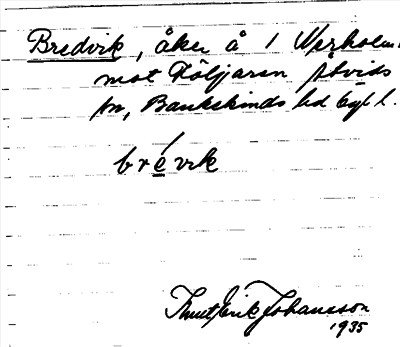 Bredvik, åker å 1 Norholm
mot Följaren Åtvids
sn, Bankekinds hd Ögl.
brévik
Knut Erik Johansson
1935